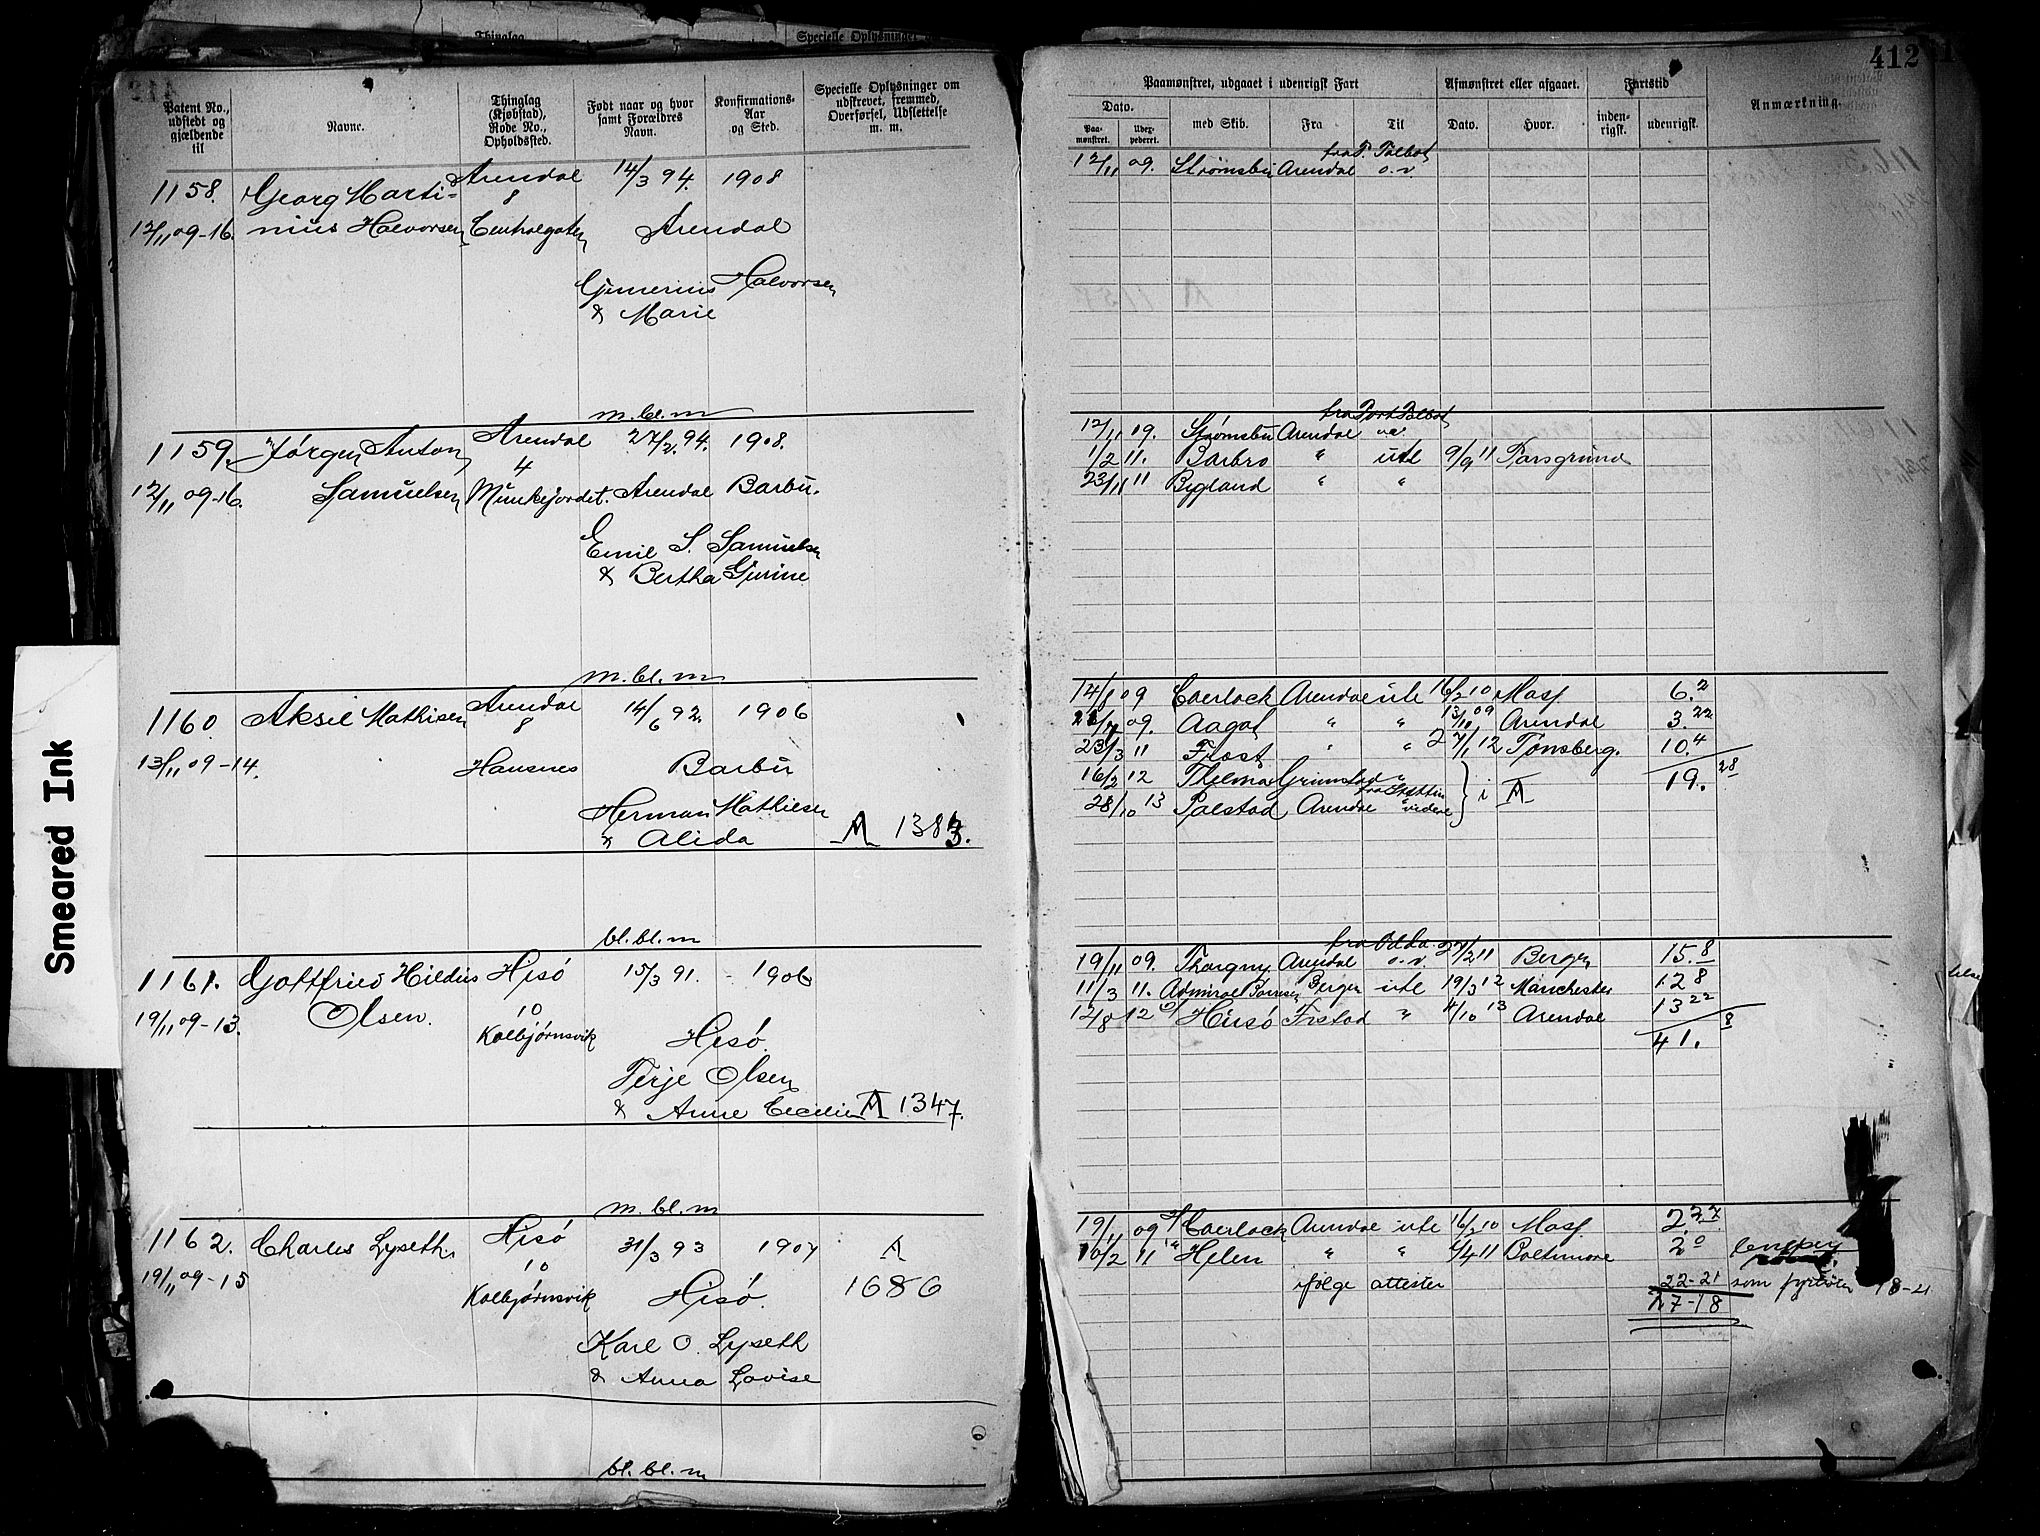 Smeared Ink
412
Patent No., udstedt og gjældende til
Navne.
Thinglag (Kjøbstad), Rode No., Opholdssted.
Født naar og hvor samt Forældres Navn.
Konfirmations-Aar og Sted.
Specielle Oplysninger om udskrevet, fremmed, Overførsel, Udslettelse m. m.
1158. Georg Marti- Arendal 14/3 94. 1908
8
12/11 09-16. nius Halvorsen Centralgaten Arendal
Halvorsen
& Marie
m. bl. m
1159. Jørgen Anton Arendal 27/2. 94. 1908.
4
12/11 09-16. Samuelsen Munkejordet. Arendal Barbu.
Emil S. Samuelsen
& Bertha Gurine
m. bl. m
1160. Aksil Mathisen Arendal 14/6 92. 1906
8
13/11 09-14. Hansnes Barbu
Herman Mathisen
& Alida A 1383.
bl. bl. m
1161. Gottfried Hildus Hisø 15/3 91. - 1906
19/11 09-13. Olsen. 10
Kolbjørnsvik Hisø.
Terje Olsen
& Anne Cecilie A 1347.
m. bl. m
1162. Charles Lyseth Hisø 31/3 93 1907 A
10
19/11 09-15 Kolbjørnsvik Hisø. 1686
Karl O. Lyseth
& Anna Lovise
bl. bl. m
Paamønstret, udgaaet i udenrigsk Fart
Afmønstret eller afgaaet.
Fartstid
Anmærkning.
Dato.
Paamønstret.
med Skib.
Fra
Til
Dato.
Hvor.
indenrigsk.
udenrigsk.
fra P. Talbot
12/11 09. Strømsbu Arendal o.v.
fra Port Talbot
12/11 09. Strømsbu Arendal
1/2 11. Barbro " utl 9/9 11 Porsgrund
23/11 11 Bygland " "
14/8 09 Caerlock Arendal utl 16/2 10 Mosj. 6.2
09. Aagot " " 13/10 09 Arendal 3.22
23/3 11 Frost " " 27/1 12 Tønsberg. 10.4
16/2 12 Thelma Grimstad " 19. 28
28/10 13 Palstad Arendal videre } i A
fra Odda
19/11 09. Thorgny Arendal o.v. 27/2 11 Bergen 15.8
11/3 11. Admiral Bergen utl 19/3 12 Manchester 12 8
12/8 12 Hisø Frstad " 4/10 13 Arendal 13 22
41. 8
19/11 09 Caerlock Arendal utl 16/2 10 Mosj
10/2 11 Helen " " 6/4 11 Baltimore 2 0
ifølge attester 22-21 som fyrbøter 18-21
27-18